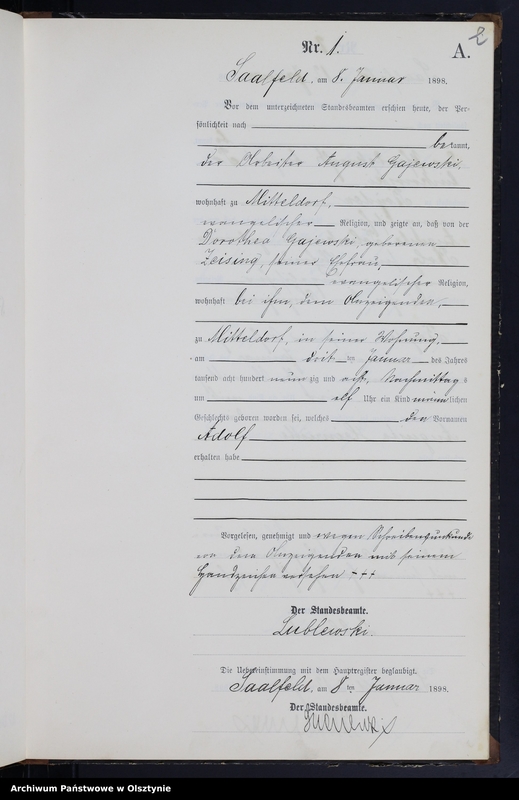 2
Nr. 1.
A.
Saalfeld, am 8. Januar 1898.
Vor dem unterzeichneten Standesbeamten erschien heute, der Per-
sönlichkeit nach
bekannt,
der Arbeiter August Gajewski,
wohnhaft zu Mitteldorf,
evangelischer Religion, und zeigte an, daß von der
Dorothea Gajewski, geborenen
Zeising, seiner Ehefrau,
evangelischer Religion,
wohnhaft bei ihm, dem Anzeigenden,
zu Mitteldorf, in seiner Wohnung,
am drit ten Januar des Jahres
tausend acht hundert neunzig und acht, Nachmittags
um elf Uhr ein Kind männlichen
Geschlechts geboren worden sei, welches den Vornamen
Adolf
erhalten habe
Vorgelesen, genehmigt und wegen Schreibensunkunde
von dem Anzeigenden mit seinem
Handzeichen versehen +++
Der Standesbeamte.
Lublewski.
Die Uebereinstimmung mit dem Hauptregister beglaubigt.
Saalfeld, am 8 ten Januar 1898.
Der Standesbeamte.
Archiwum Państwowe w Olsztynie